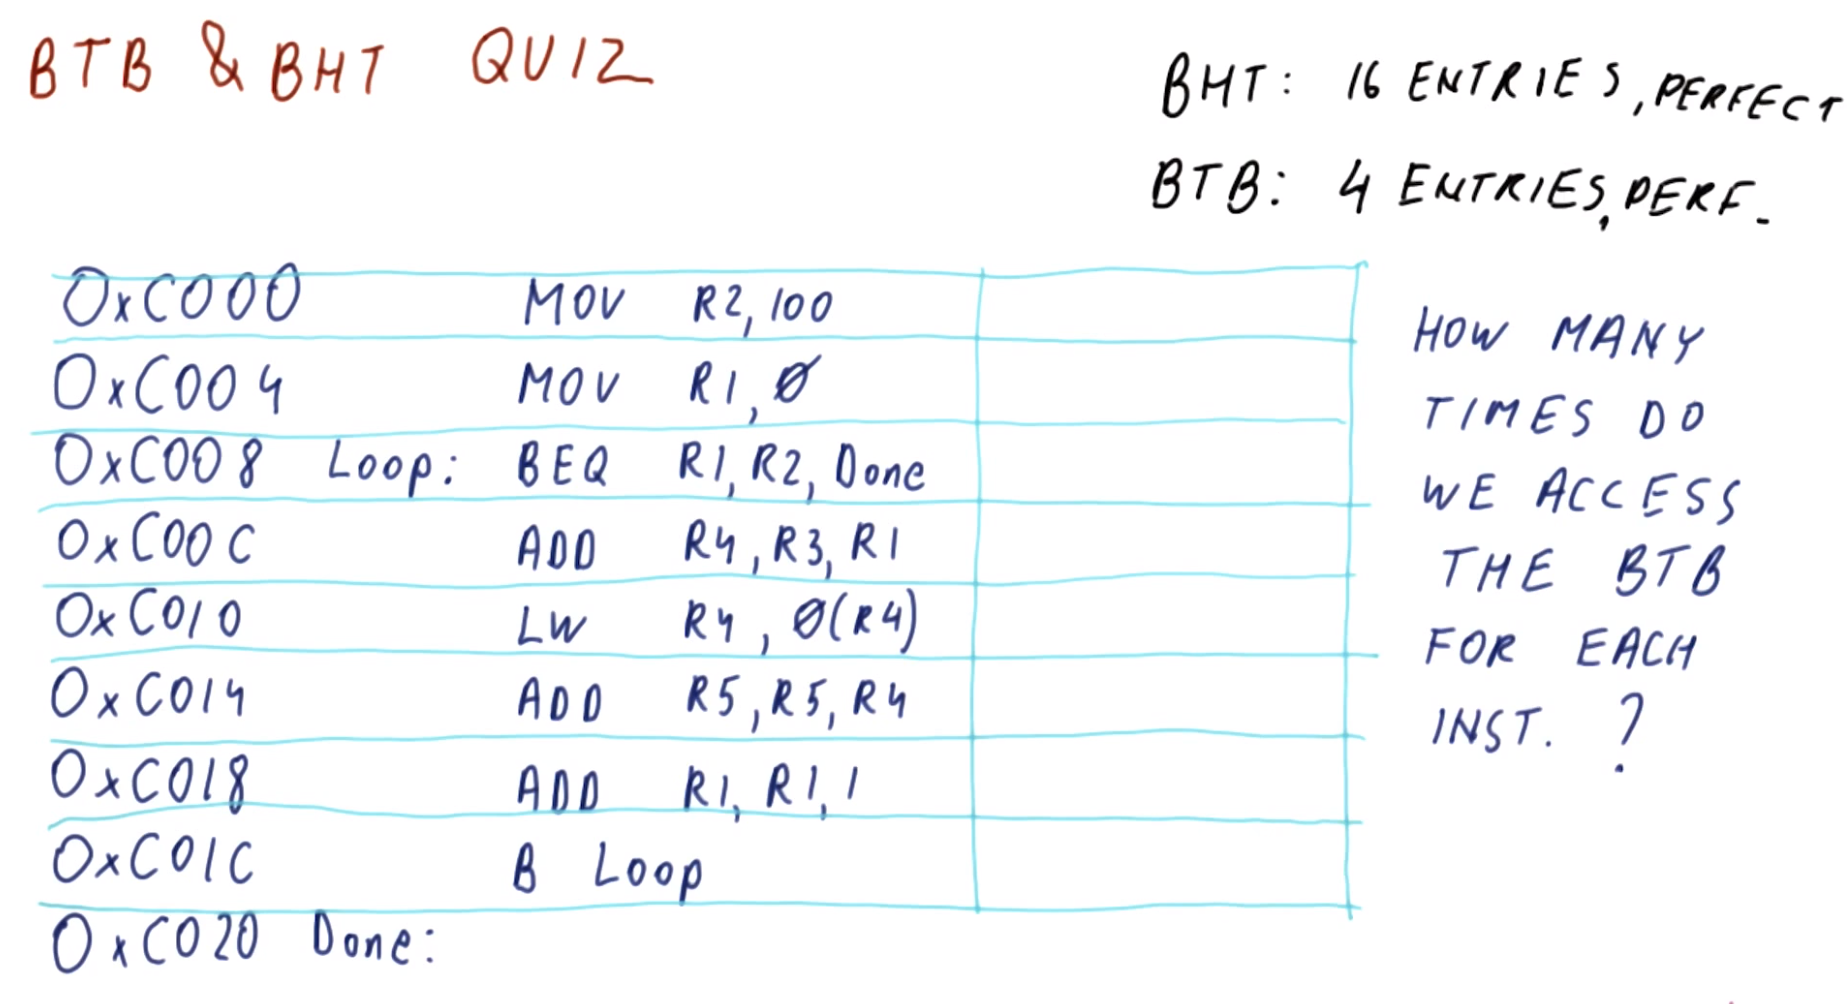 BTB & BHT QUIZ
BHT: 16 ENTRIES, PERFECT
BTB: 4 ENTRIES, PERF.
0xC000 MOV R2, 100
0xC004 MOV R1, Ø
0xC008 Loop: BEQ R1, R2, Done
0xC00C ADD R4, R3, R1
0xC010 LW R4, Ø(R4)
0xC014 ADD R5, R5, R4
0xC018 ADD R1, R1, 1
0xC01C B Loop
0xC020 Done:
HOW MANY
TIMES DO
WE ACCESS
THE BTB
FOR EACH
INST. ?